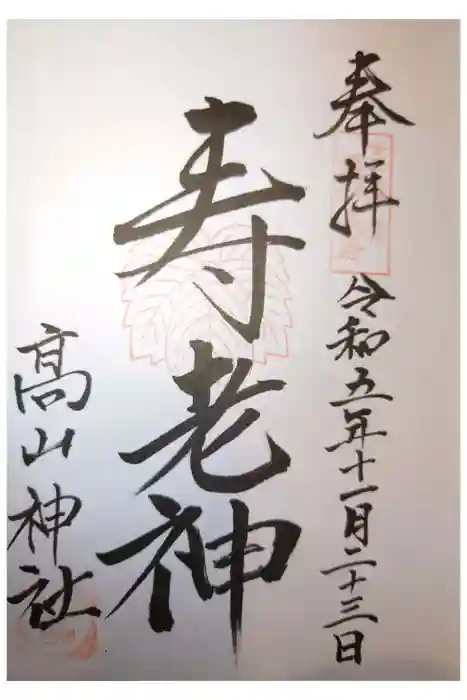 奉拝
令和五年十一月二十三日
寿老神
髙山神社